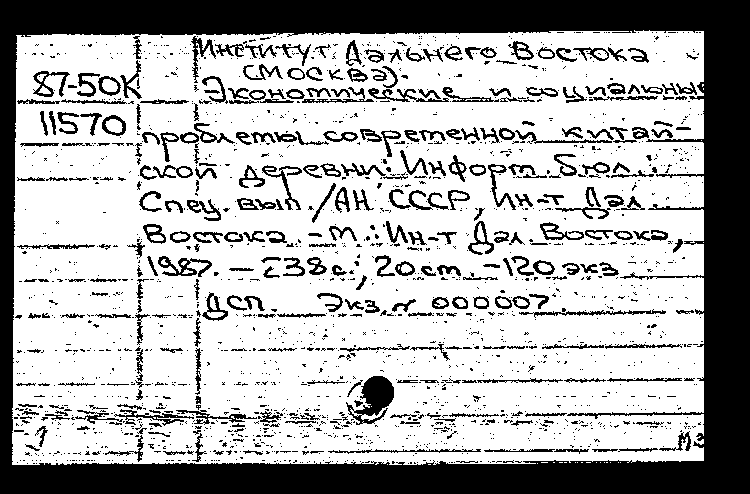 Институт Дальнего Востока
(Москва).
87-50К
Экономические и социальные
11570
проблемы современной китай-
ской деревни: Информ. бюл.:
Спец. вып./АН СССР, Ин-т Дал.
Востока. - М.: Ин-т Дал. Востока,
1987. - 238 с.; 20 см. - 120 экз
ДСП. Экз. № 000007.